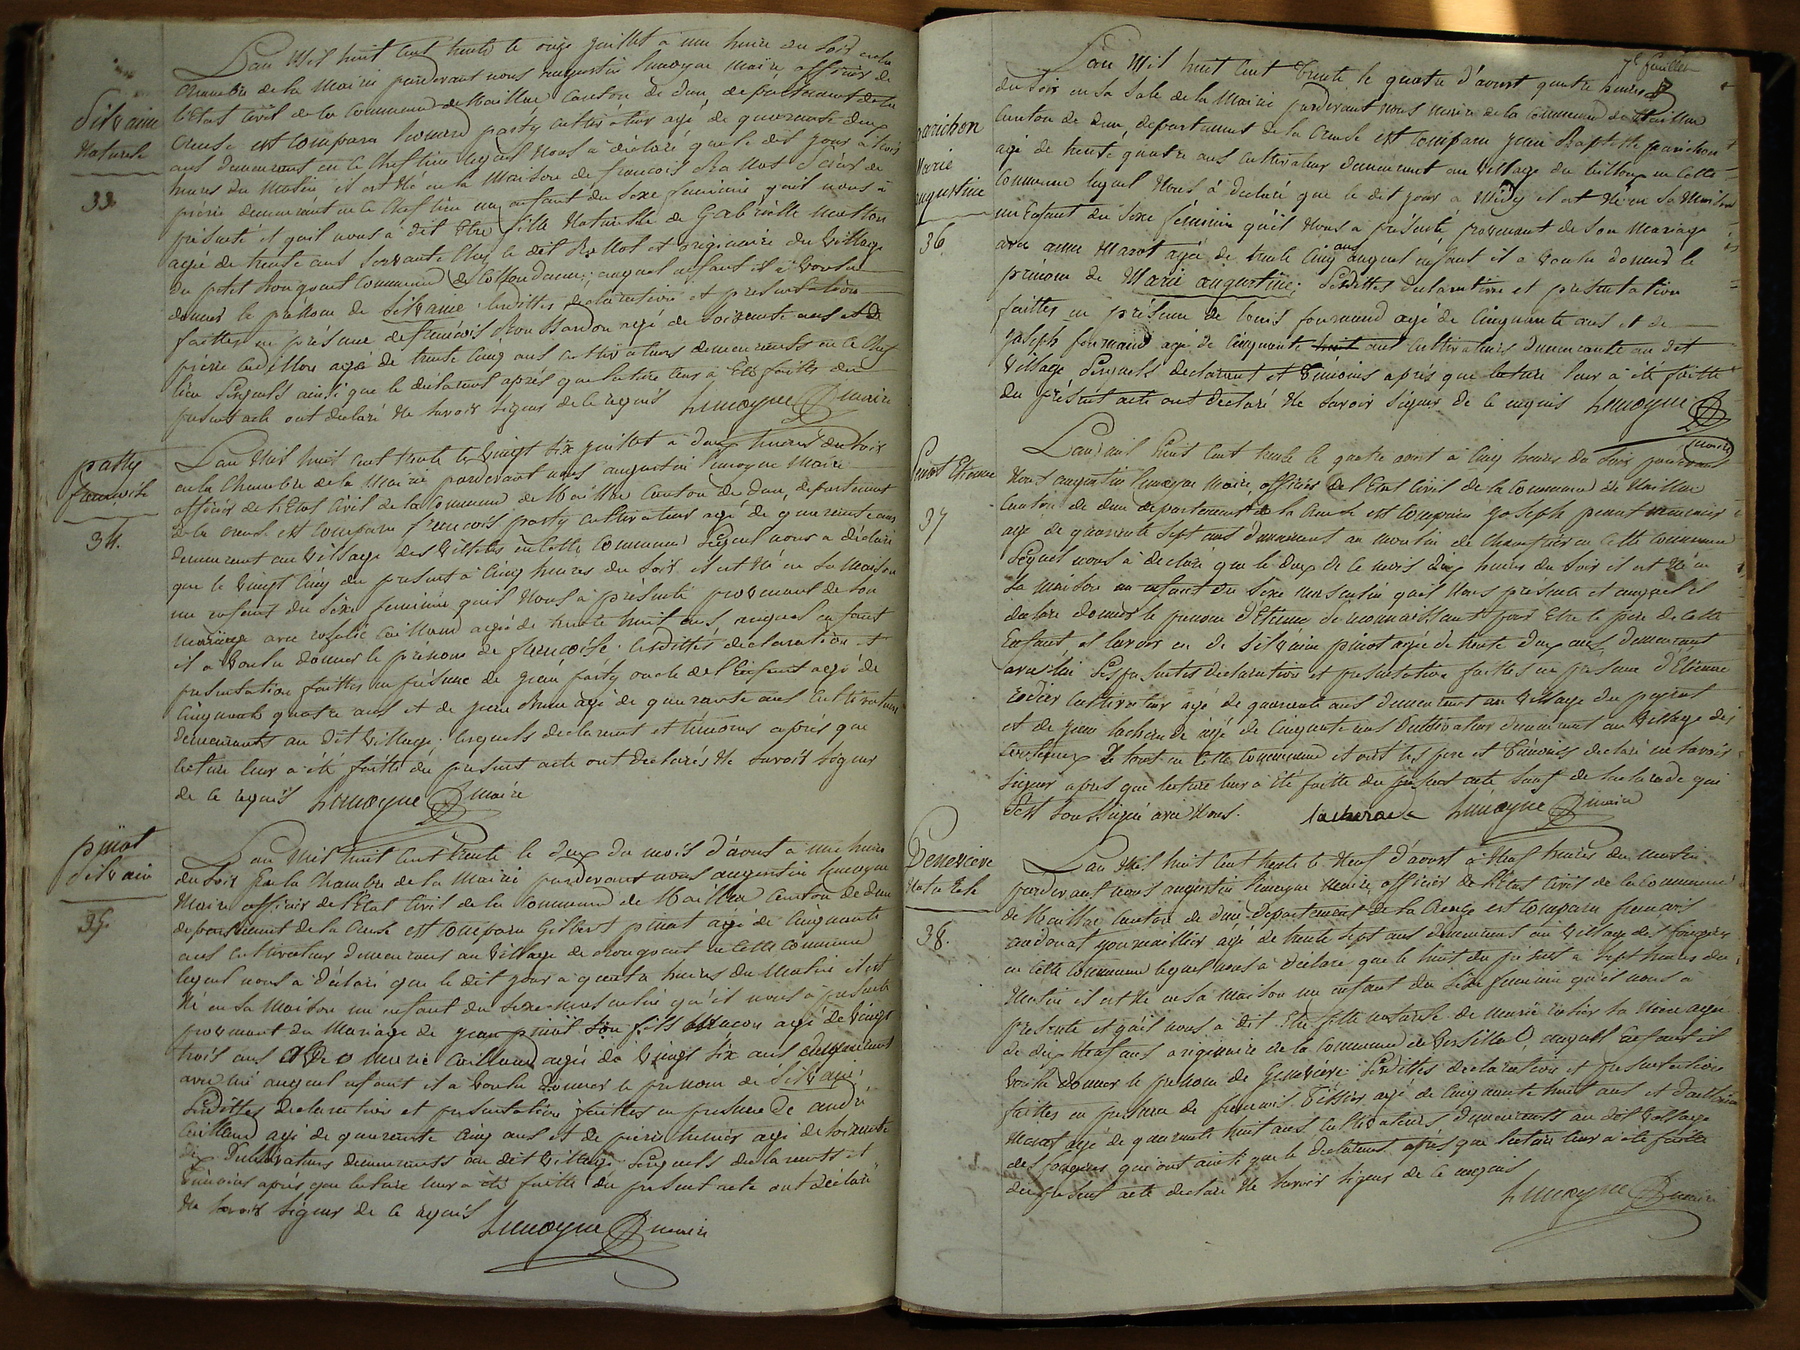 Silvaine
Naturele
33.
L'an Mil huit cent trente le onze juillet à une heure du soir en la
chambre de la Mairie pardevant nous augustin Lemoyne Maire officier de
l'Etat civil de la Commune de Naillac canton de dun, departement de la
Creuse est comparu leonard party cultivateur agé de quarante deux
ans demeurant en ce Chef lieu lequel Nous à déclaré que le dit jour à trois
heures du Matin il est Né en la Maison de francois
demeurant en ce Chef lieu un enfant du Sexe feminin quil nous à
présenté et quil nous à dit Etre fille Naturelle de Gabrielle
agée de trente ans Servante Chez le dit et originaire du Village
du petit commune de auquel enfant il à Voulu
donner le prénom de Silvaine. lesdittes declaration et presentation
faittes en présence de francois agé de Soixante ans et de
pierre agé de trente Cinq ans cultivateurs demeurants en ce Chef
lieu lesquels ainsi que le déclarant après que lecture leur à Eté faitte du
present acte ont déclaré Ne Savoir Signer de ce requis Lemoyne maire
party
francoise
34.
L'an Mil huit cent trente le Vingt Six juillet à deux heures du soir
en la Chambre de la Mairie pardevant nous augustin Lemoyne Maire
officier de l'Etat Civil de la Commune de Naillac Canton de dun, departement
de la creuse est comparu francois party cultivateur agé de quarante ans
demeurant au Village des Villettes en Cette Commune lequel nous a déclaré
que le Vingt Cinq du présent à Cinq heures du Soir il est Né en Sa Maison
un enfant du Sexe feminin quil Nous à présenté provenant de Son
mariage avec rosalie agée de trente huit ans, auquel enfant
il à Voulu donner le prénom de francoise. lesdittes declaration et
presentation faittes en présence de jean party oncle de l'Enfant agé de
Cinquante quatre ans et de jean agé de quarante ans Cultivateurs
demeurants au dit Village. lesquels declarant et témoins après que
lecture leur à été faitte du present acte ont declarés Ne Savoir Signer
de ce requis Lemoyne maire
pinot
Silvain
35.
L'an Mil huit cent trente le deux du mois d'aout à une heure
du soir En la Chambre de la Mairie pardevant nous augustin Lemoyne
Maire officier de l'Etat Civil de la Commune de Naillac Canton de dun
departement de la Creuse est comparu Gilbert pinot agé de Cinquante
ans cultivateur demeurant au Village de en Cette Commune
lequel nous à déclaré que le dit jour à quatre heures du Matin il est
Né en Sa Maison un enfant du Sexe masculin qu'il nous à présenté
provenant du Mariage de jean pinot Son fils Macon agé de Vingt
trois ans et de Marie agée de Vingt Six ans demeurant
avec lui auquel enfant il à Voulu donner le prenom de Silvain.
lesdittes declaration et presentation faittes en presence de andré
agé de quarante Cinq ans et de pierre agé de Soixante
dix Cultivateurs demeurants au dit Village lesquels declarants et
témoins après que lecture leur à été faitte du present acte ont déclaré
Ne Savoir Signer de ce requis
Lemoyne maire
7e feuillet
parichon
Marie
augustine
36.
L'an Mil huit Cent Trente le quatre d'aoust quatre heures
du Soir en la Sale de la Mairie pardevant nous maire de la commune de Naillac
Canton de dun, departement de la Creuse est comparu jean Baptiste parichon
agé de trente quatre ans cultivateur demeurant au Village du en Cette
Commune lequel Nous à déclaré que le dit jour à Midy il est Né en Sa Maison
un Enfant du Sexe féminin qu'il Nous a présenté, provenant de Son Mariage
avec anne Marot agée de trente Cinq ans auquel enfant il a Voulu donner le
prénom de Marie augustine; Lesdittes declaration et presentation
faittes en présence de louis fourmaud agé de Cinquante ans et de
joseph fourmaud agé de cinquante huit ans Cultivateurs demeurants au dit
Village Lesquels declarant et témoins après que lecture leur à été faitte
du présent acte ont declaré Ne Savoir Signer de ce requis Lemoyne
maire
pinot Etienne
37
L'an mil huit Cent trente le quatre aout à Cinq heures du Soir pardevant
Nous augustin Lemoyne Maire officier de l'Etat Civil de la Commune de Naillac
Canton de dun departement de la Creuse est comparu joseph pinot
agé de quarante Sept ans demeurant au moulin de en Cette commune
Lequel nous à declaré que le deux de ce mois dix heures du Soir il est Né en
Sa Maison un enfant du Sexe masculin quil Nous présente et auquel il
declare donner le prenom d'Etienne Se reconnaissant pour Etre le père de Cette
Enfant et lavoir eu de Silvaine pinot agée de trente deux ans demeurant
avec lui Les presentes declaration et presentation faittes en presence d'Etienne
Cultivateur agé de quarante ans demeurant au Village du
et de jean lacherade agé de Cinquante ans Cultivateur demeurant au Village des
le tout en Cette Commune et ont les père et témoins declaré ne Savoir
Signer après que lecture leur à été faitte du présent acte Sauf de lacherade qui
S'est Soussigné avec Nous. lacherade Lemoyne maire
Genevieve
Naturele
38.
L'an Mil huit Cent trente le Neuf d'aoust à Neuf heures du matin
pardevant nous augustin Lemoyne Maire officier de l'Etat Civil de la Commune
de Naillac Canton de dun departement de la Creuse est comparu francois
agé de trente Sept ans demeurant au Village des fougères
en Cette Commune lequel nous à déclaré que le huit du présent à Sept heures du
Matin il est Né en Sa Maison un enfant du Sexe feminin qu'il nous à
présenté et qu'il nous à dit Etre fille naturele de Marie
de dix Neuf ans originaire de la Commune de Versillat auquel enfant il
Voulu donner le prenom de Geneviève lesdittes declaration et presentation
faittes en presence de francois agé de Cinquante huit ans et
Marot agé de quarante huit ans cultivateurs demeurants au dit Village
des fougères qui ont ainsi que le declarant après que lecture leur à été faitte
du present acte declaré Ne Savoir Signer de ce requis
Lemoyne maire